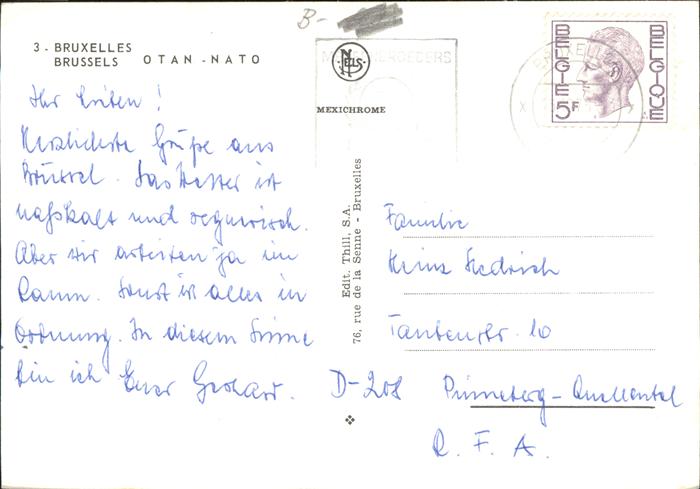 B-
3 - BRUXELLES
BRUSSELS OTAN - NATO
NELS
MEXICHROME
BELGIE BELGIQUE
5F
BRUXELLES
Ihr Lieben!
Herzlichste Grüße aus
Brüssel. Das Wetter ist
naßkalt und regnerisch.
Aber wir arbeiten ja im
Raum. Sonst ist alles in
Ordnung. In diesem Sinne
bin ich Euer Gerhard.
Edit. Thill, S.A.
76, rue de la Senne - Bruxelles
Familie
Heinz Hedrich
Taubenstr. 10
D-208 Pinneberg-Quellental
R.F.A.